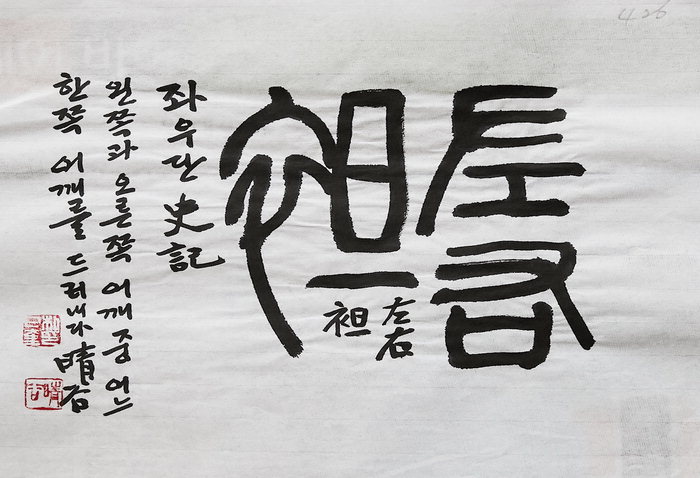 426
左右
袒
左右
袒
좌우단 史記
왼쪽과 오른쪽 어깨 중 어느
한쪽 어깨를 드러내다 晴谷